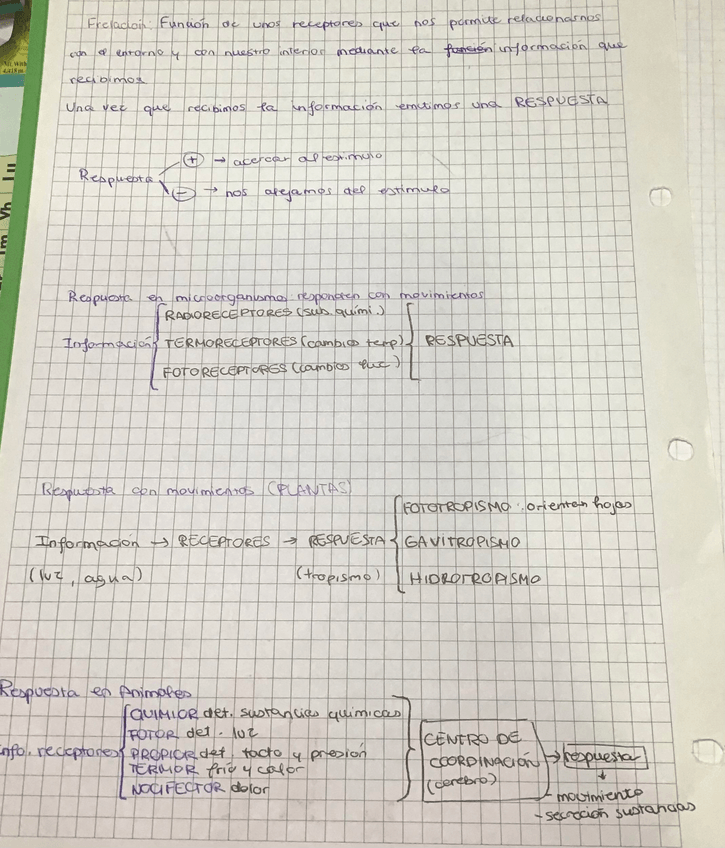 F.relacion: Función de unos receptores que nos permite relacionarnos
con el entorno y con nuestro interior mediante la función información que
recibimos
Una vez que recibimos la información emitimos una RESPUESTA
Respuesta
+ → acercar al estimulo
- → nos alejamos del estimulo
Respuesta en microorganismos: responden con movimientos
RADIORECEPTORES (sus químí.)
Información TERMORECEPTORES (cambios temp) RESPUESTA
FOTORECEPTORES (cambios luz)
Respuesta con movimientos (PLANTAS)
FOTOTROPISMO: orientan hojas
Información → RECEPTORES → RESPUESTA GAVITROPISMO
(luz, agua) (tropismo) HIDROTROPISMO
Respuesta en Animales
QUIMIOR det. sustancias quimicas
FOTOR det. luz
info. receptores PROPIOR det. tacto y presión
TERMOR frio y calor
NOCIFECTOR dolor
CENTRO DE
COORDINACIÓN → respuesta
(cerebro)
- movimiento
- secreción sustancias